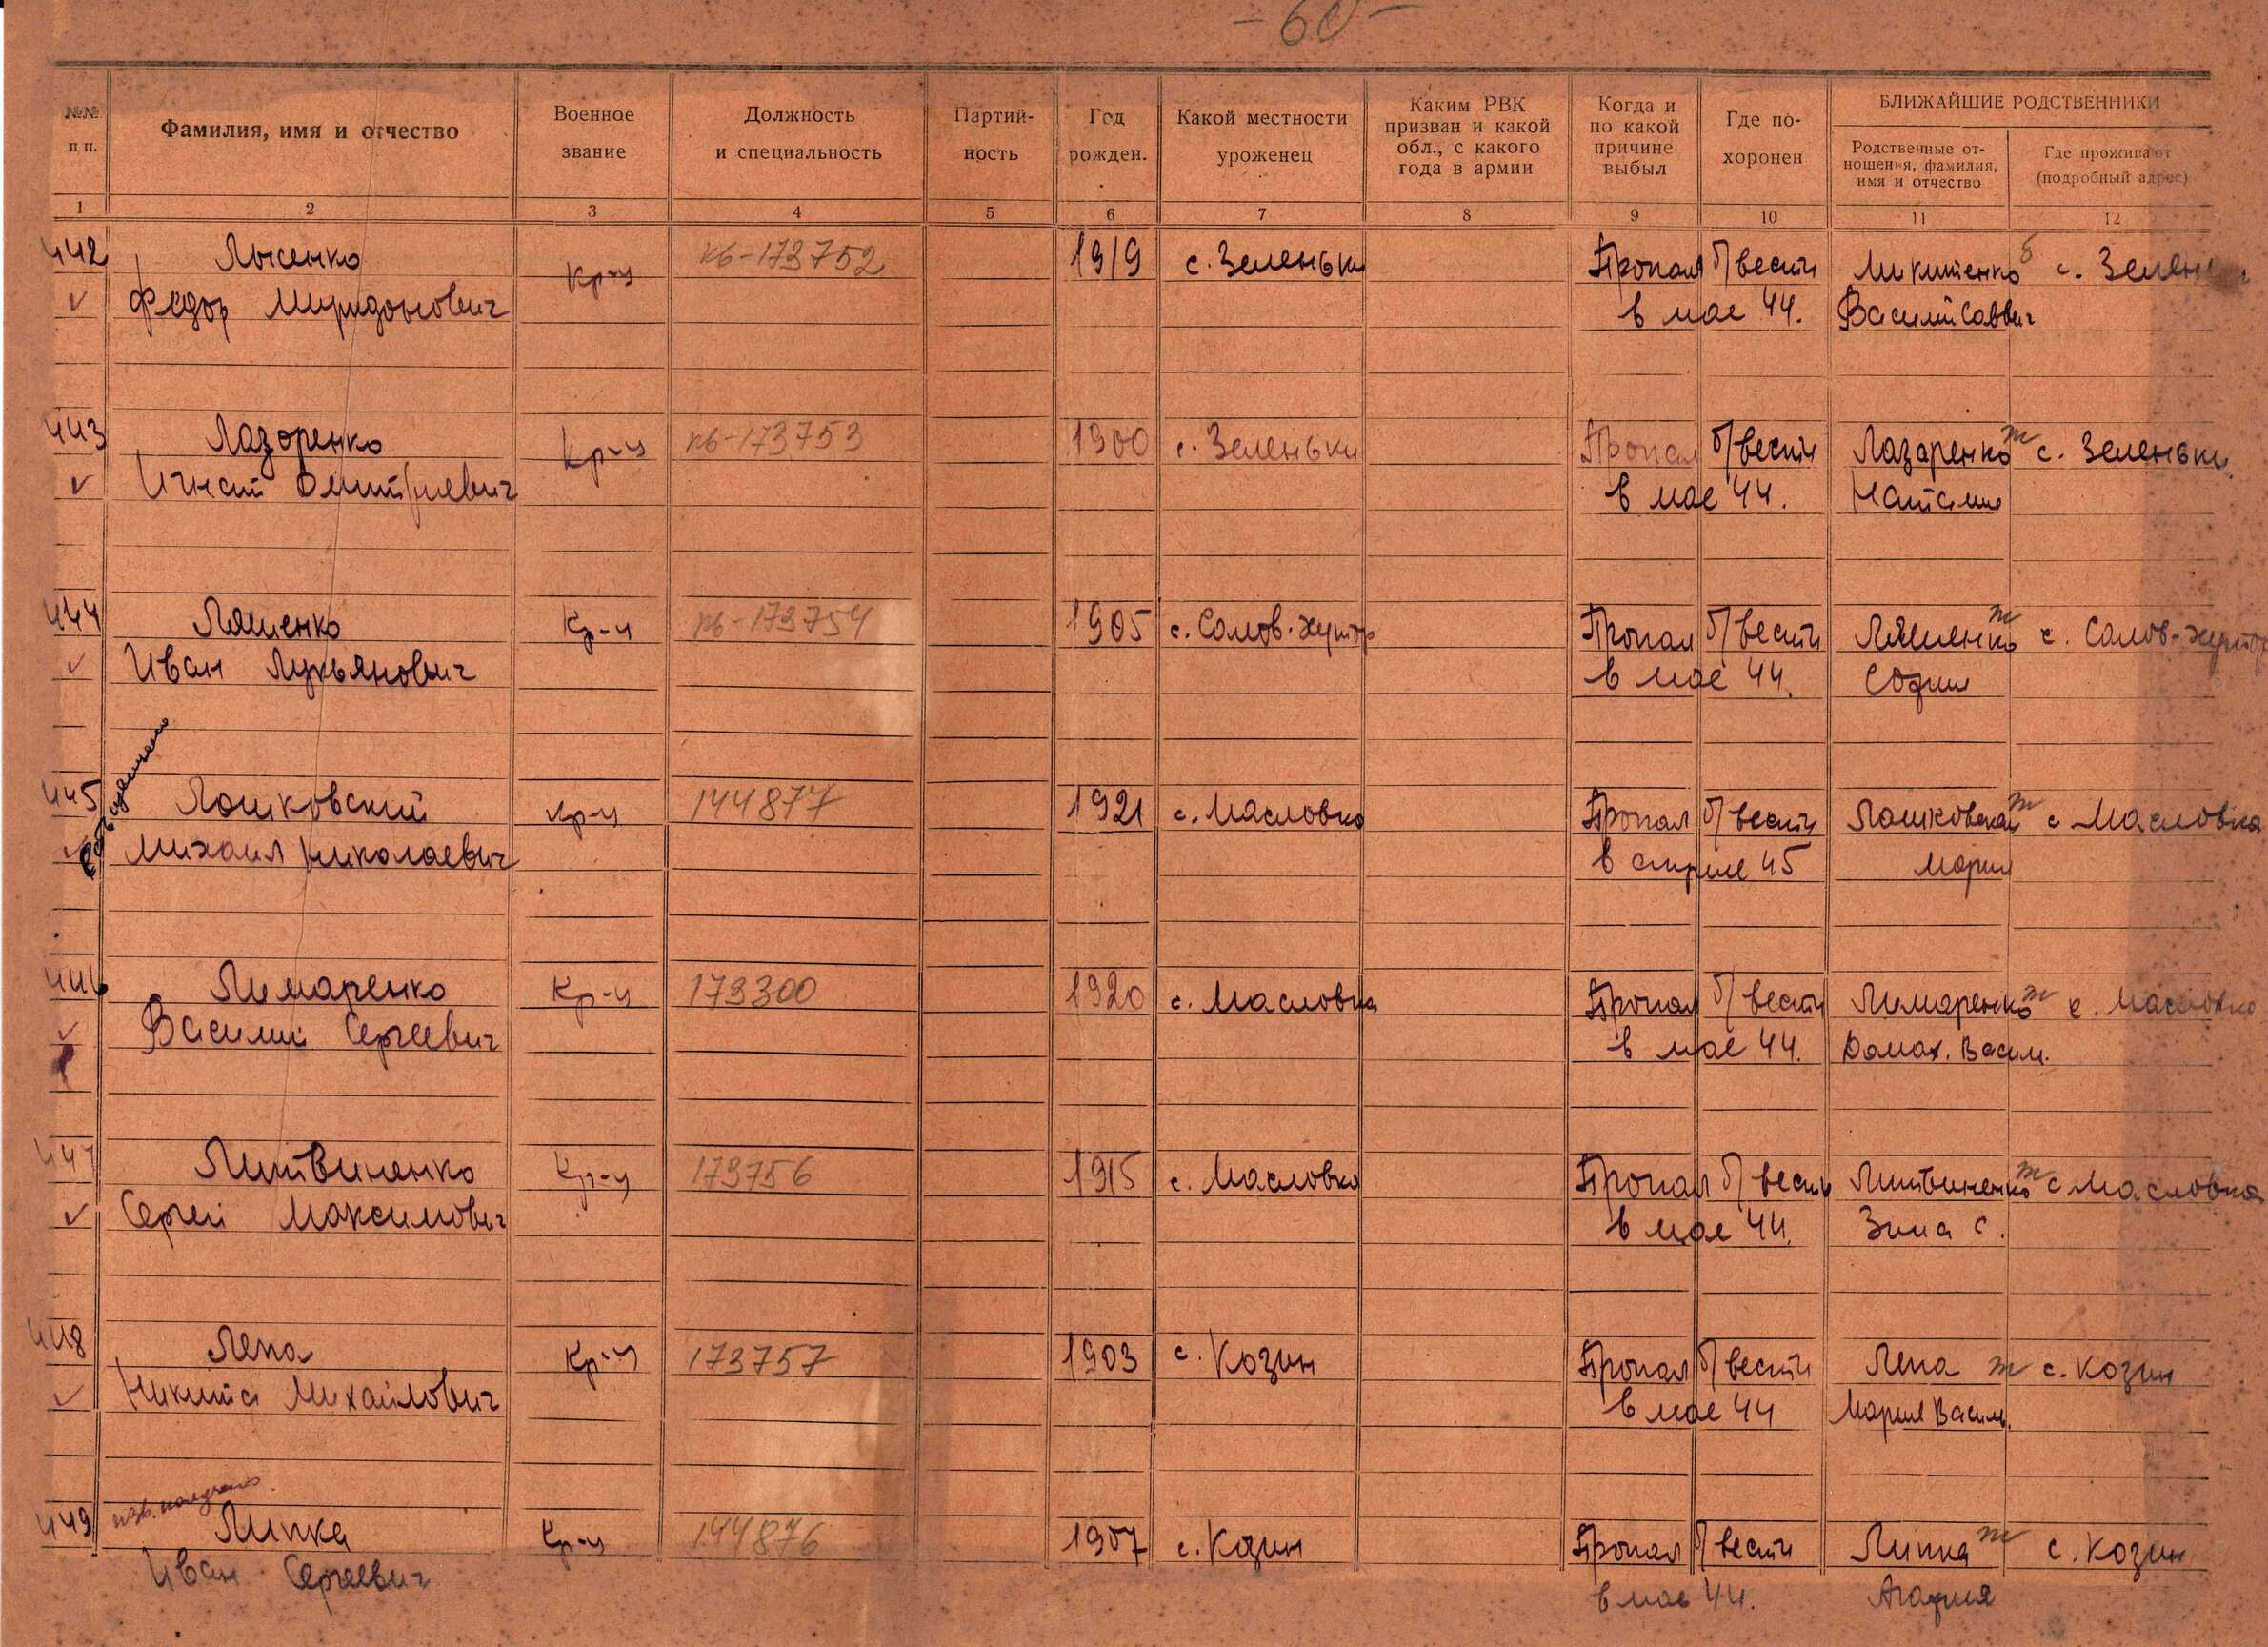 - 60 -
№№ п п.
Фамилия, имя и отчество
Военное звание
Должность и специальность
Партий- ность
Год рожден.
Какой местности уроженец
Каким РВК призван и какой обл., с какого года в армии
Когда и по какой причине выбыл
Где по- хоронен
БЛИЖАЙШИЕ РОДСТВЕННИКИ
Родственные от- ношения, фамилия, имя и отчество
Где проживают (подробный адрес)
1 2 3 4 5 6 7 8 9 10 11 12
442 Лысенко кр-ц пб-173752 1919 с. Зеленьки Пропал б/вести Микитенко б с. Зелень
Федор Миридонович в мае 44. Василий Саввич
443 Лазоренко кр-ц пб-173753 1900 с. Зеленьки Пропал б/вести Лазаренко ж с. Зеленьки
Игнат Дмитриевич в мае 44. Наталия
444 Ляшенко Кр-ц пб-173754 1905 с. Салов-хутор Пропал б/вести Ляшенко ж с. Салов-хутор
Иван Лукьянович в мае 44. София
445 Лошковский кр-ц 144877 1921 с. Масловка Пропал б/вести Лошковская ж с Масловка
Михаил Николаевич в апреле 45 Мария
446 Лимаренко Кр-ц 173300 1920 с. Масловка Пропал б/вести Лимаренко ж с. Масловка
Василий Сергеевич в мае 44. Домах. Васил.
447 Литвиненко Кр-ц 173756 1915 с. Масловка Пропал б/вести Литвиненко ж с Масловка
Сергей Максимович в мае 44. Зина С.
448 Лепа Кр-ц 173757 1903 с. Козин Пропал б/вести Лепа ж с. Козин
Никита Михайлович в мае 44 Мария Васил.
изв. получено
449 Липка Кр-ц 144876 1907 с. Козин Пропал б/вести Липка ж с. Козин
Иван Сергеевич в мае 44. Агафия